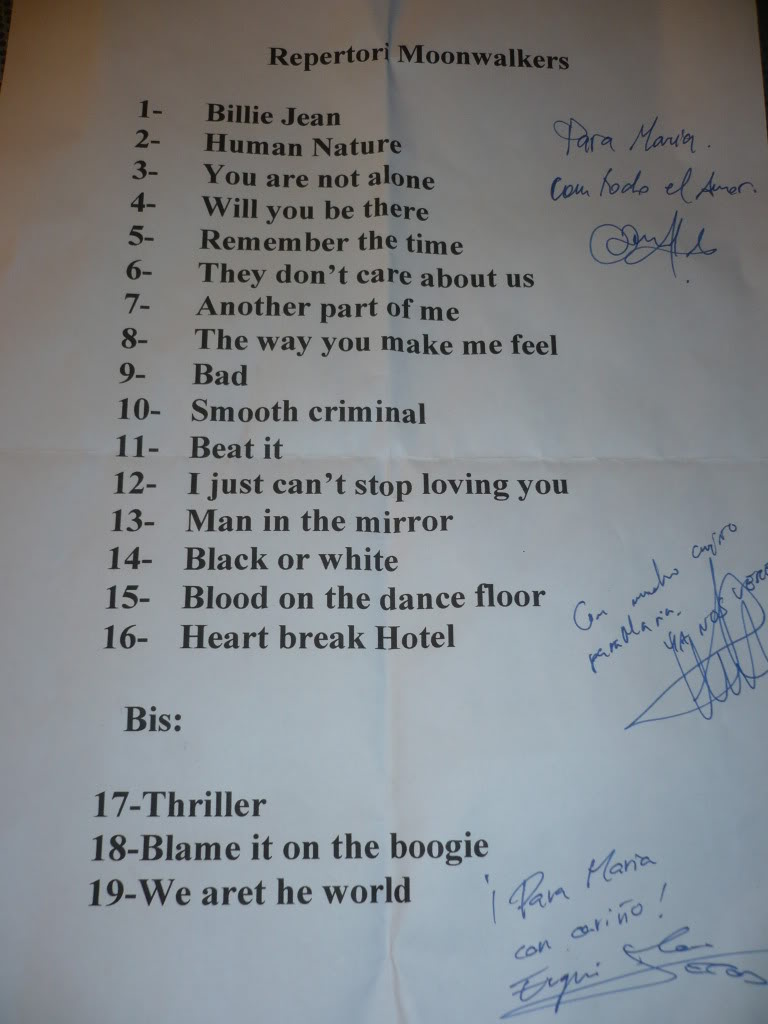 Repertori Moonwalkers
1- Billie Jean
2- Human Nature
3- You are not alone
4- Will you be there
5- Remember the time
6- They don't care about us
7- Another part of me
8- The way you make me feel
9- Bad
10- Smooth criminal
11- Beat it
12- I just can't stop loving you
13- Man in the mirror
14- Black or white
15- Blood on the dance floor
16- Heart break Hotel
Bis:
17-Thriller
18-Blame it on the boogie
19-We aret he world
Para Maria.
Con todo el Amor.
Con mucho cariño
para Maria.
YA NOS
¡Para Maria
con cariño!